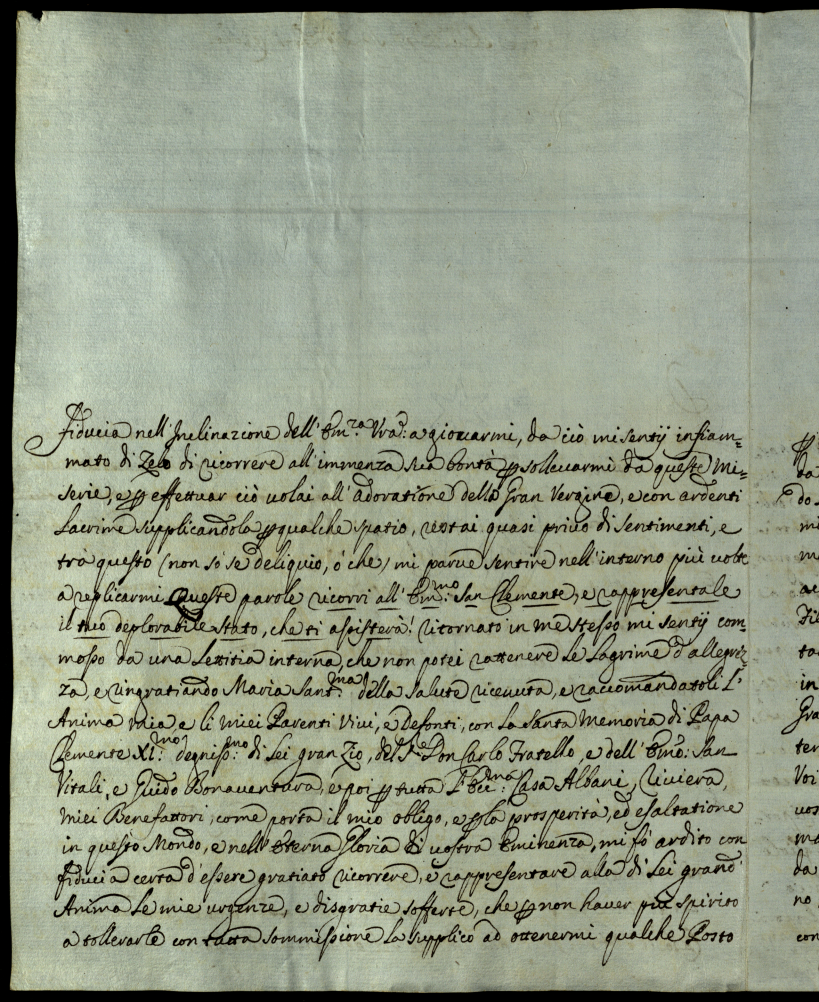 Fiducia nell'Inclinazione dell'Em.za Vra: a giovarmi, da ciò mi sentÿ infiam=
mato di Zelo di ricorrere all'immenza sua bontà ꝑ sollevarmi da queste Mi=
serie, e ꝑ effettuar ciò volai all'adoratione della Gran Vergine, e con ardenti
Lacrime supplicandola ꝑ qualche spatio, restai quasi privo di sentimenti, e
trà questo (non so se deliquio, ò che) mi parve sentire nell'interno più volte
a replicarmi queste parole ricorri all'Em.mo San Clemente, e rappresentale
il tuo deplorabile stato, che ti assisterà! Ritornato in me stesso mi sentÿ com=
mosso da una Letitia interna, che non potei rattenere le Lagrime d'allegrez=
za, e ringratiando Maria Sant.ma della salute ricevuta, e raccomandatoli l'
Anima mia e li miei Parenti Vivi, e Defonti, con la Santa Memoria di Papa
Clemente XI.mo degniss.mo di Lei gran Zio, del S.e Don Carlo Fratello, e dell'Emo: San
Vitali, e Guido Bonaventura, e poi ꝑ tutta l'Ecc.ma Casa Albani, Riviera,
miei Benefattori, come porta il mio obligo, e ꝑ la prosperità, ed esaltatione
in questo Mondo, e nell'Eterna Gloria di vostra Eminenza, mi fò ardito con
fiducia certa d'essere gratiato ricorrere, e rappresentare alla di Lei grand'
Anima le mie urgenze, e disgratie sofferte, che ꝑ non haver più spirito
a tollerarle con tutta sommissione la supplico ad ottenermi qualche Posto